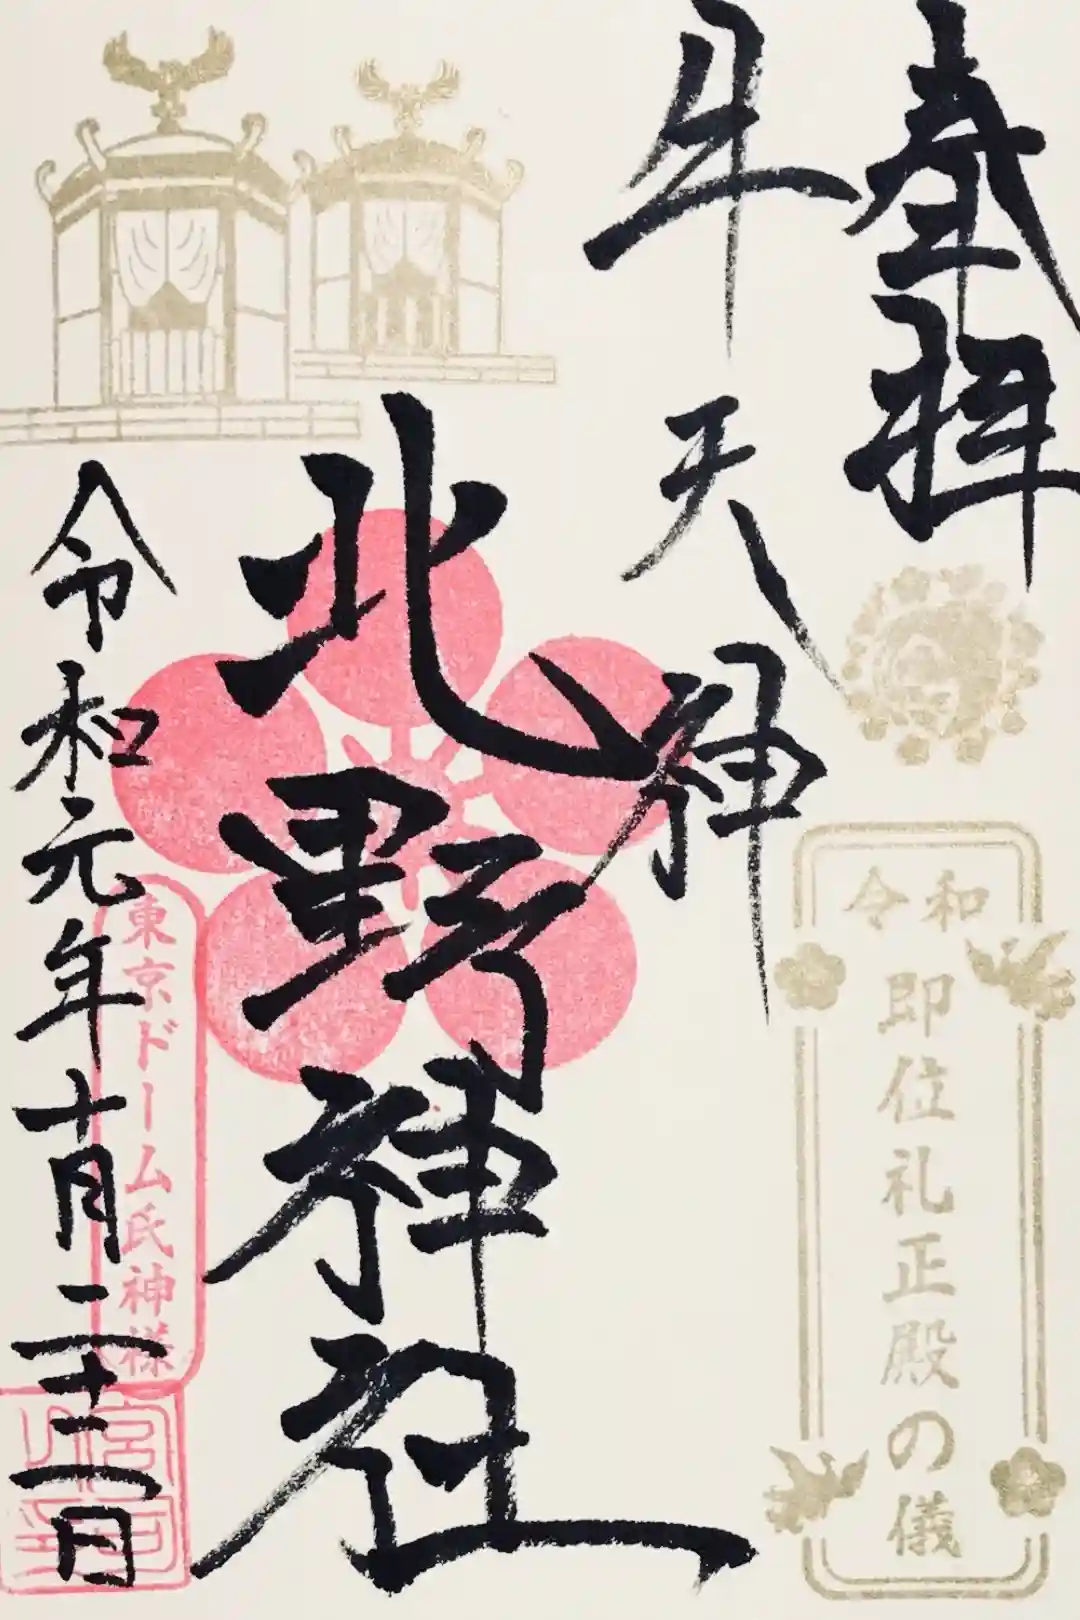 奉拝
令和
即位礼正殿の儀
牛天神
北野神社
令和元年十月二十二日
東京ドーム氏神様
宮司之印